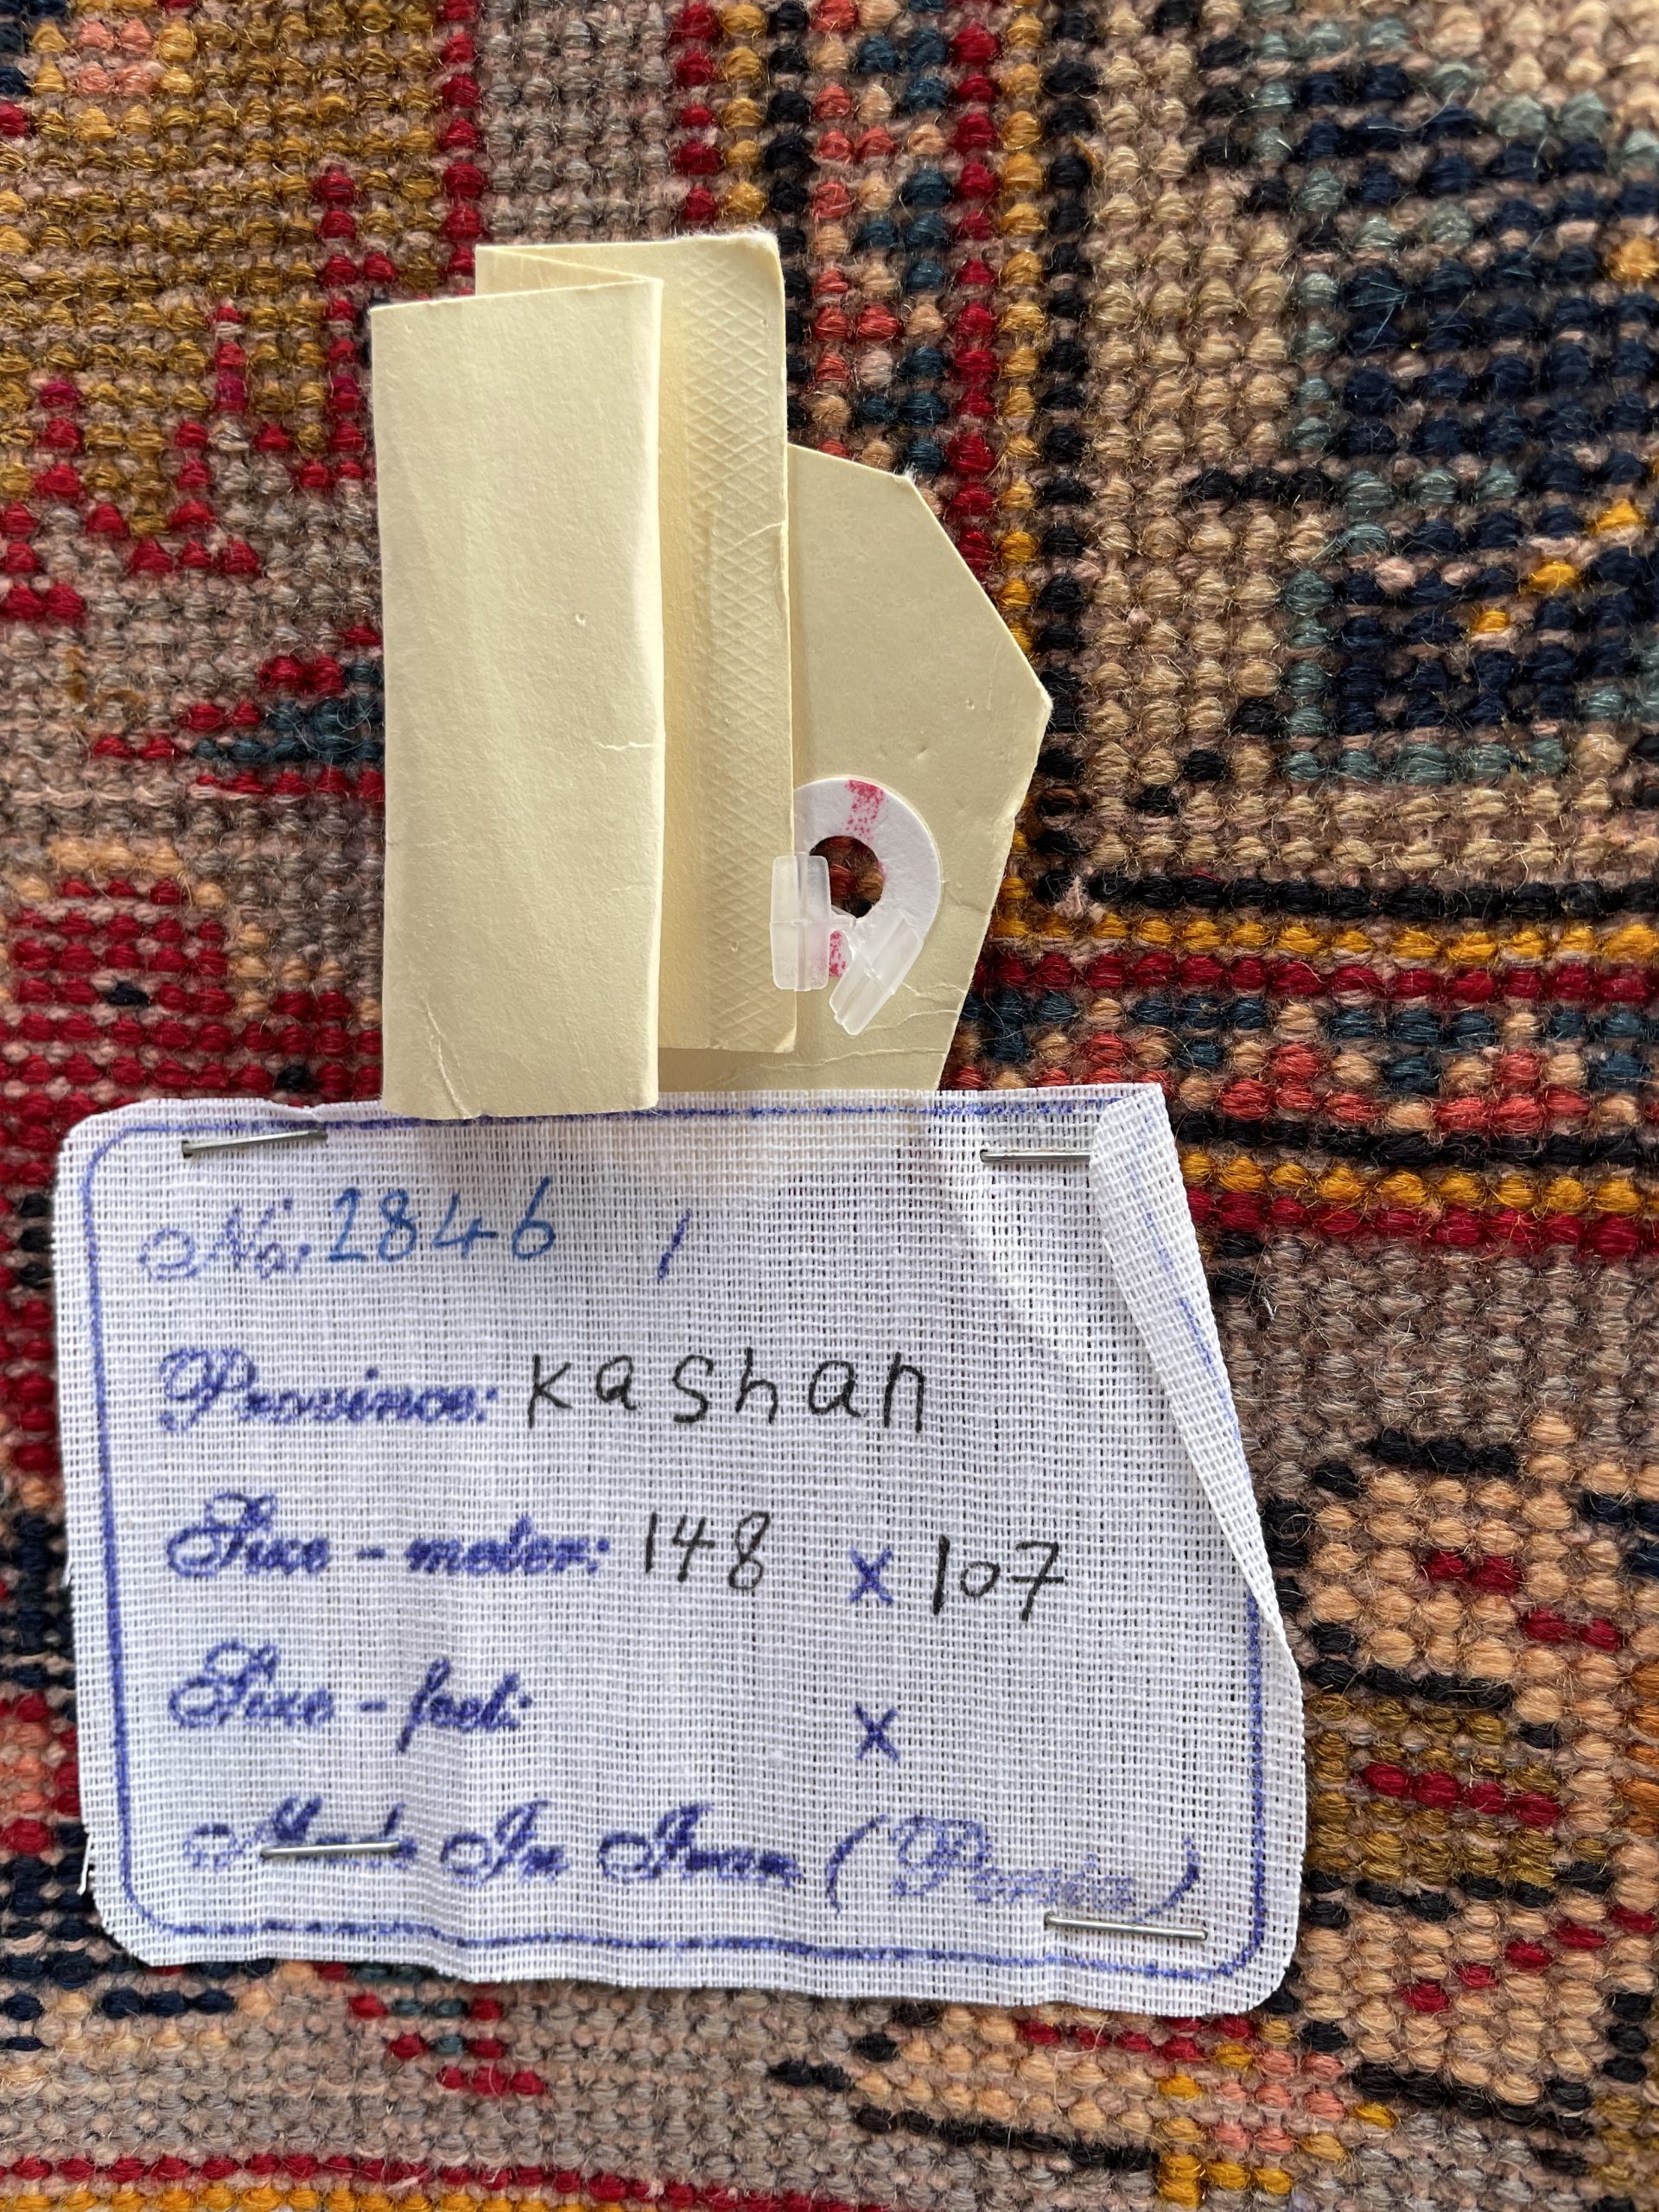 No: 2846 /
Province: Kashan
Size - meter: 148 x 107
Size - feet: x
Made In Iran (Persia)